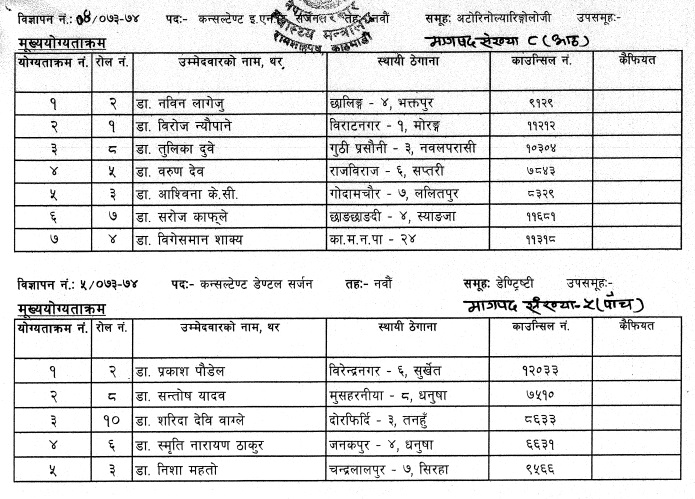 विज्ञापन नं.: ०४/०७३-७४ पदः- कन्सल्टेण्ट इ.एन. सर्जन तहः- नवौं समूहः अटोरिनोल्यारिङ्गोलोजी उपसमूहः-
स्वास्थ्य मन्त्रालय
रामशाहपथ, काठमाडौं
मूख्ययोग्यताक्रम मागपद संख्या ८ (आठ)
योग्यताक्रम नं. रोल नं. उम्मेदवारको नाम, थर स्थायी ठेगाना काउन्सिल नं. कैफियत
१ २ डा. नविन लागेजु छालिङ्ग - ४, भक्तपुर ९१२९
२ १ डा. विरोज न्यौपाने विराटनगर - १, मोरङ्ग ११२१२
३ ८ डा. तुलिका दुवे गुठी प्रसौनी - ३, नवलपरासी १०३०४
४ ५ डा. वरुण देव राजविराज - ६, सप्तरी ७८४३
५ ३ डा. आश्विना के.सी. गोदामचौर - ७, ललितपुर ८३२९
६ ७ डा. सरोज काफ्ले छाङछाङदी - ४, स्याङजा ११६८१
७ ४ डा. विगेसमान शाक्य का.म.न.पा - २४ ११३१८
विज्ञापन नं.: ५/०७३-७४ पदः- कन्सल्टेण्ट डेण्टल सर्जन तहः- नवौं समूहः डेण्ट्रिष्टी उपसमूहः-
मूख्ययोग्यताक्रम मागपद संख्या-५ (पाँच)
योग्यताक्रम नं. रोल नं. उम्मेदवारको नाम, थर स्थायी ठेगाना काउन्सिल नं. कैफियत
१ २ डा. प्रकाश पौडेल विरेन्द्रनगर - ६, सुर्खेत १२०३३
२ ८ डा. सन्तोष यादव मुसहरनीया - ८, धनुषा ७५१०
३ १० डा. शरिदा देवि वाग्ले दोरफिर्दि - ३, तनहुँ ८६३३
४ ६ डा. स्मृति नारायण ठाकुर जनकपुर - ४, धनुषा ६६३१
५ ३ डा. निशा महतो चन्द्रलालपुर - ७, सिरहा ९५६६